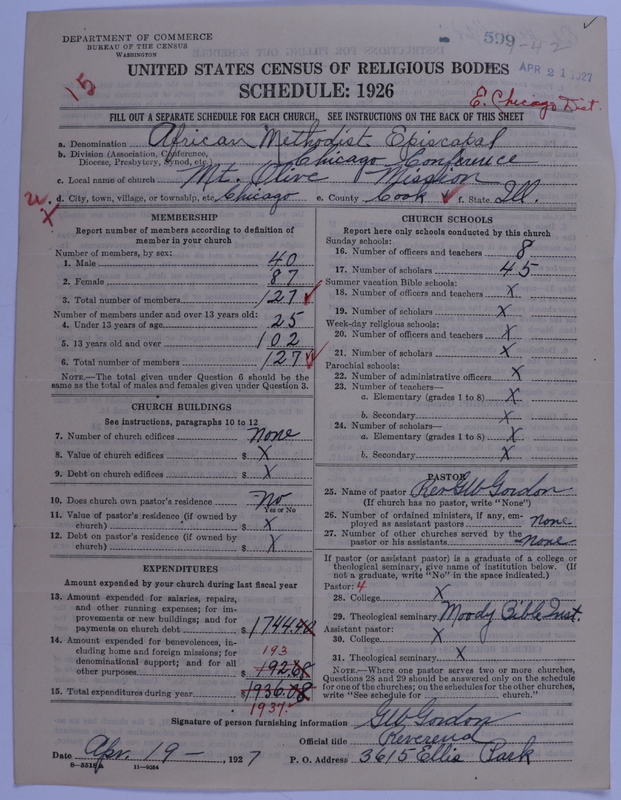 DEPARTMENT OF COMMERCE
BUREAU OF THE CENSUS
WASHINGTON
599
7-42
APR 21 1927
15
UNITED STATES CENSUS OF RELIGIOUS BODIES
SCHEDULE: 1926
E. Chicago Dist.
FILL OUT A SEPARATE SCHEDULE FOR EACH CHURCH. SEE INSTRUCTIONS ON THE BACK OF THIS SHEET
a. Denomination African Methodist Episcopal
b. Division (Association, Conference, Diocese, Presbytery, Synod, etc.) Chicago Conference
c. Local name of church Mt. Olive Mission
d. City, town, village, or township, etc. Chicago e. County Cook f. State Ill.
MEMBERSHIP
Report number of members according to definition of
member in your church
Number of members, by sex:
1. Male 40
2. Female 87
3. Total number of members 127
Number of members under and over 13 years old:
4. Under 13 years of age 25
5. 13 years old and over 102
6. Total number of members 127
NOTE.—The total given under Question 6 should be the
same as the total of males and females given under Question 3.
CHURCH BUILDINGS
See instructions, paragraphs 10 to 12
7. Number of church edifices none
8. Value of church edifices $ X
9. Debt on church edifices $ X
10. Does church own pastor's residence No
Yes or No
11. Value of pastor's residence (if owned by
church) $ X
12. Debt on pastor's residence (if owned by
church) $ X
EXPENDITURES
Amount expended by your church during last fiscal year
13. Amount expended for salaries, repairs,
and other running expenses; for im-
provements or new buildings; and for
payments on church debt $ 1744.40
14. Amount expended for benevolences, in-
cluding home and foreign missions; for 193
denominational support; and for all
other purposes $ 192.68
15. Total expenditures during year $ 1936.08
1937
CHURCH SCHOOLS
Report here only schools conducted by this church
Sunday schools:
16. Number of officers and teachers 8
17. Number of scholars 45
Summer vacation Bible schools:
18. Number of officers and teachers X
19. Number of scholars X
Week-day religious schools:
20. Number of officers and teachers X
21. Number of scholars X
Parochial schools:
22. Number of administrative officers X
23. Number of teachers—
a. Elementary (grades 1 to 8) X
b. Secondary X
24. Number of scholars—
a. Elementary (grades 1 to 8) X
b. Secondary X
PASTOR
25. Name of pastor Rev GW Gordon
(If church has no pastor, write "None")
26. Number of ordained ministers, if any, em-
ployed as assistant pastors none
27. Number of other churches served by the
pastor or his assistants none
If pastor (or assistant pastor) is a graduate of a college or
theological seminary, give name of institution below. (If
not a graduate, write "No" in the space indicated.)
Pastor: 4
28. College X
29. Theological seminary Moody Bible Inst.
Assistant pastor:
30. College X
31. Theological seminary X
NOTE.—Where one pastor serves two or more churches,
Questions 28 and 29 should be answered only on the schedule
for one of the churches; on the schedules for the other churches,
write "See schedule for church."
Signature of person furnishing information GW Gordon
Official title Reverend
Date Apr. 19 -, 1927 P. O. Address 3615 Ellis Park
8-5518a 11-9054